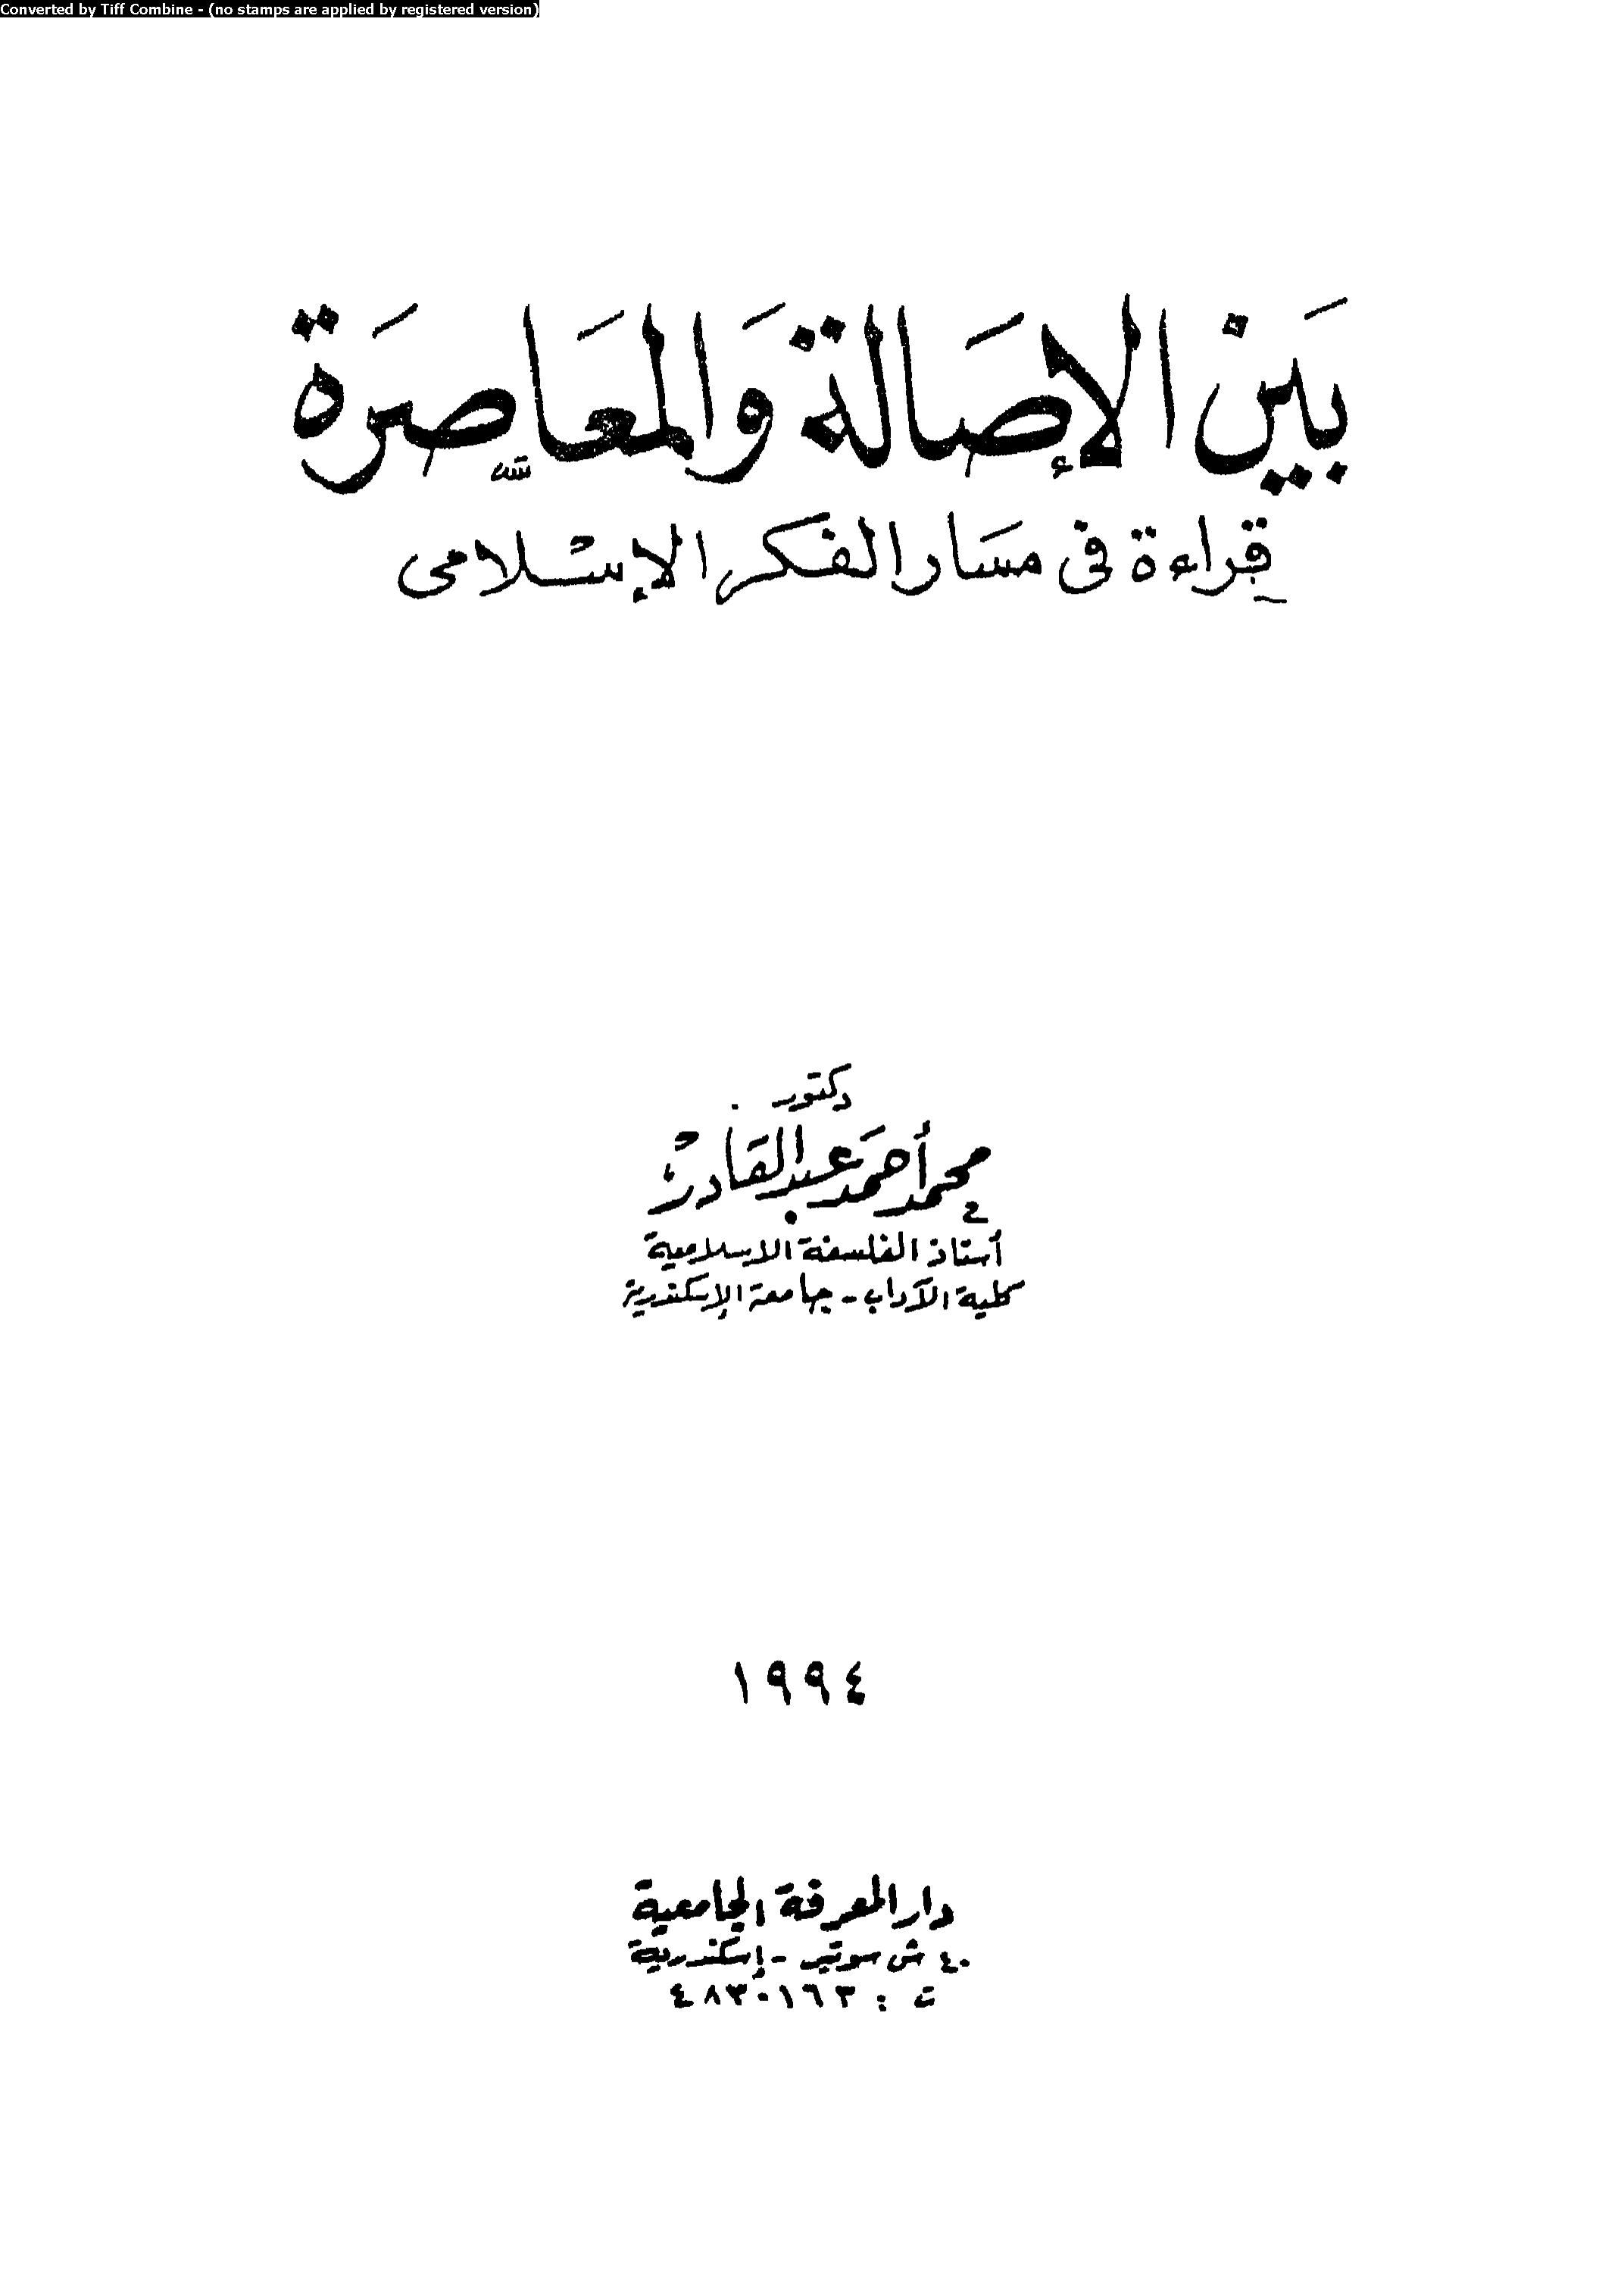 Converted by Tiff Combine - (no stamps are applied by registered version)
بَين الإصَالة وَالمعَاصرَة
قِراءة فى مسَار الفكر الإسلامى
دكتور
محمد أحمَد عبد القَادر
أستاذ الفلسفة الاسلامية
كلية الآداب - جامعة الإسكندرية
١٩٩٤
دار المعرفة الجامعية
٤٠ ش سوتير - إسكندرية
ت : ٤٨٣٠١٦٣